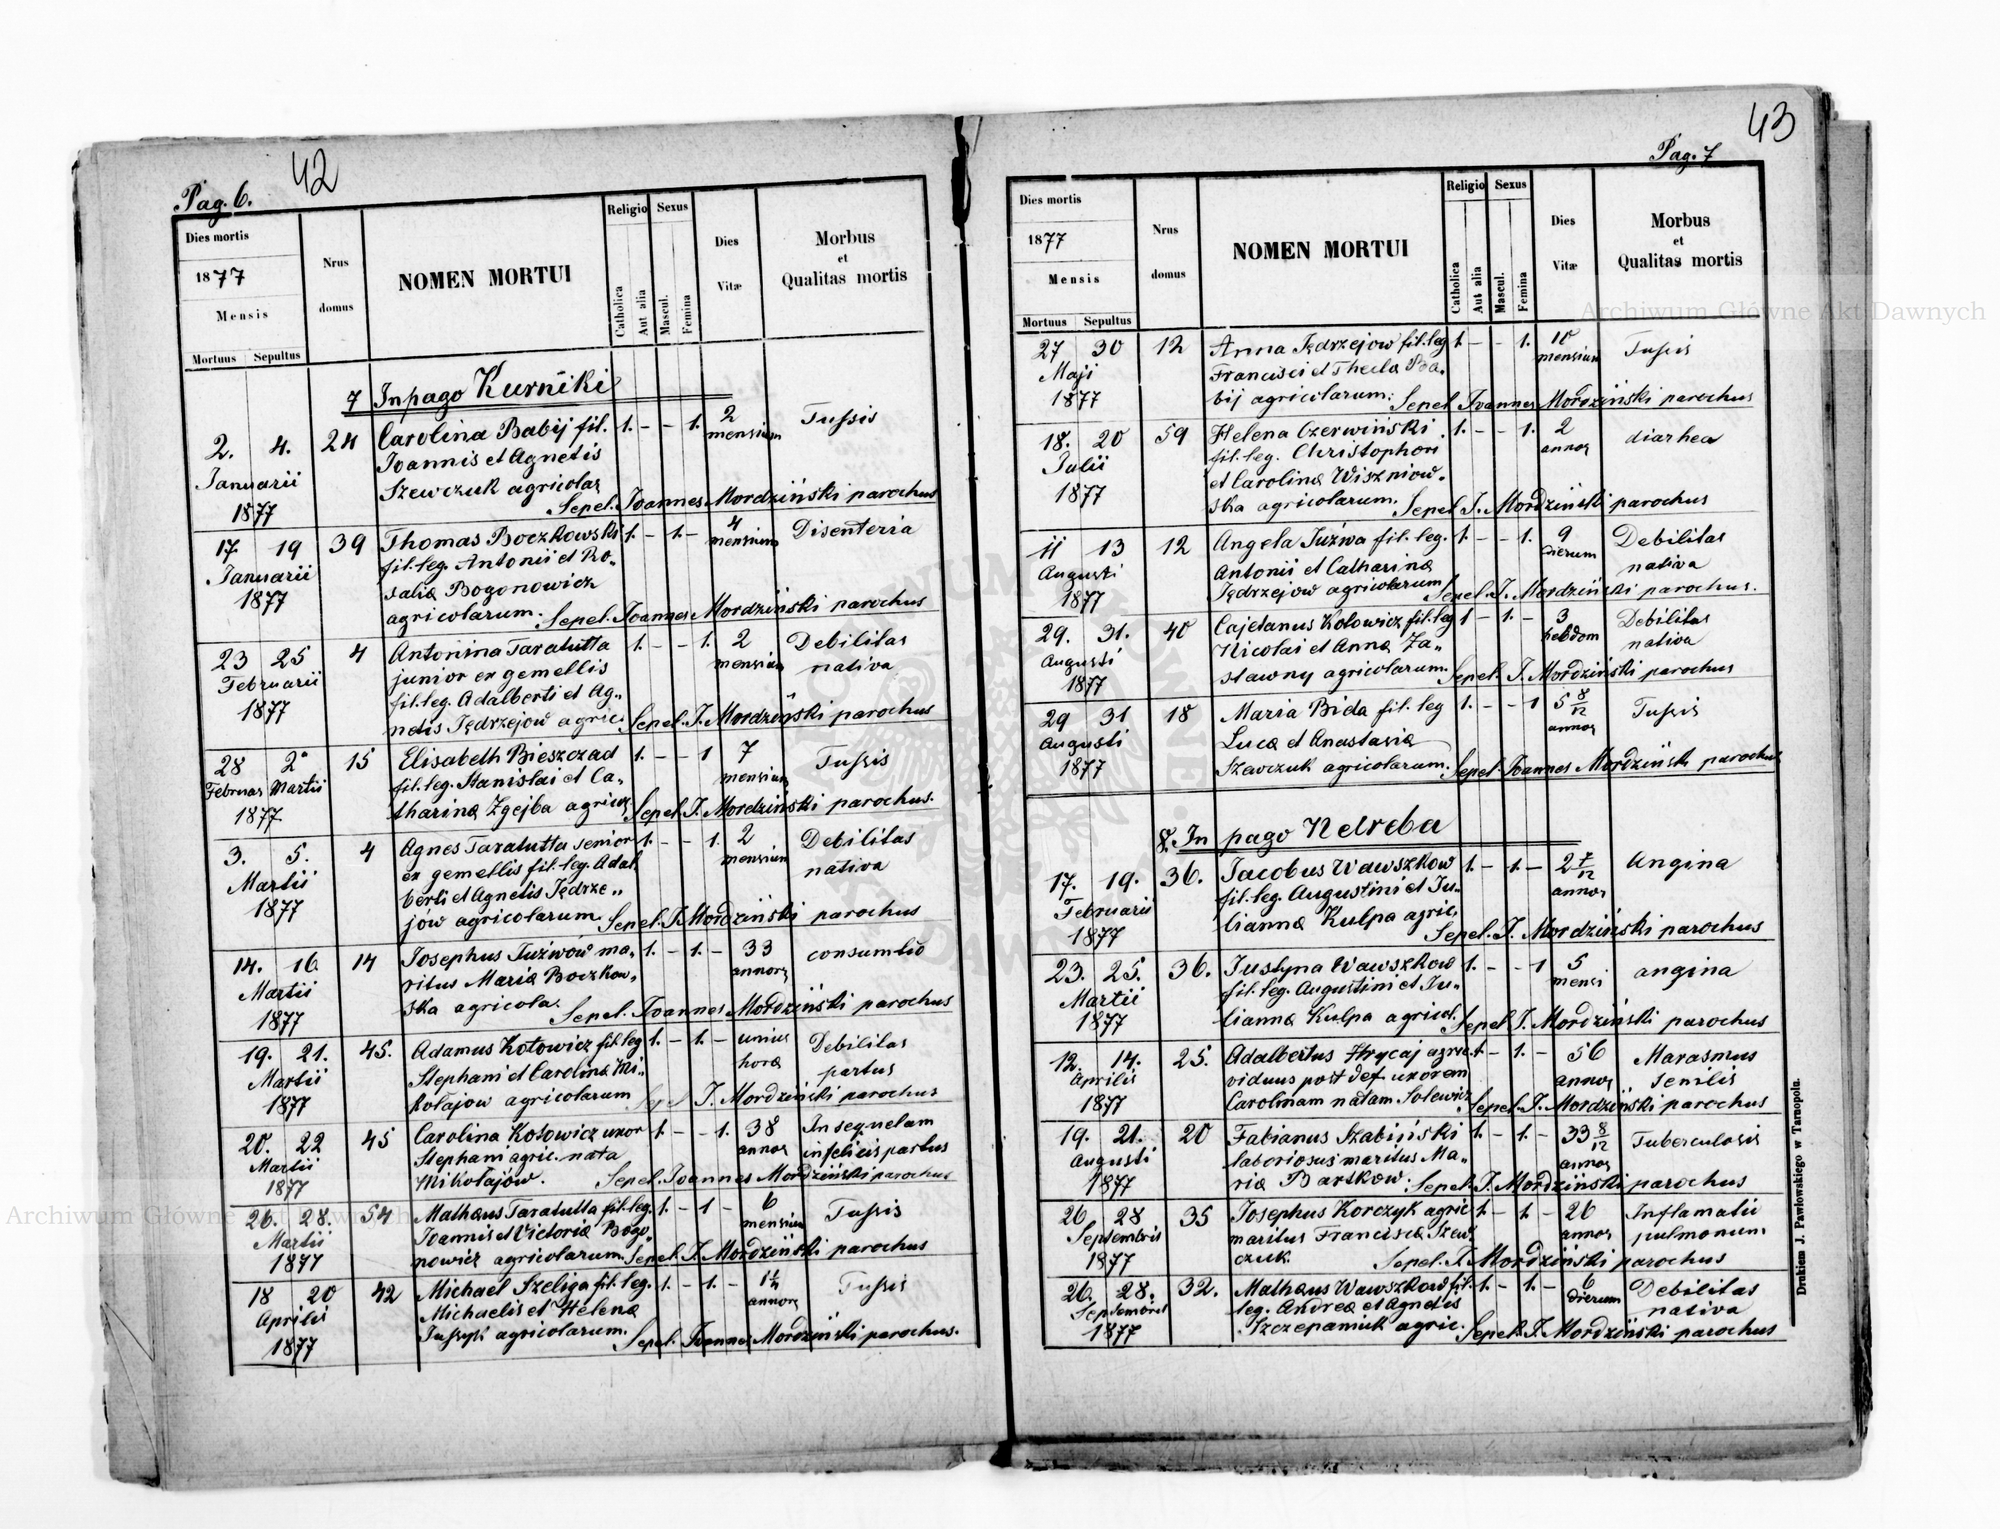 42
Pag. 6.
Dies mortis
1877
Mensis
Mortuus Sepultus
Nrus domus
NOMEN MORTUI
Religio
Catholica
Aut alia
Sexus
Mascul.
Femina
Dies Vitæ
Morbus
et
Qualitas mortis
7 In pago Kurniki
2. 4. 24 Carolina Babij fil. 1. - - 1. 2 Tussis
Januarii Joannis et Agnetis mensium
1877 Szewczuk agricolar
Sepel. Joannes Mordziński parochus
17 19 39 Thomas Boczkowski 1. - 1. - 4 Disenteria
Januarii fil. leg. Antonii et Ro- mensium
1877 salia Bogonowicz
agricolarum. Sepel. Joannes Mordziński parochus
23 25 4 Antonina Taratutta 1. - - 1. 2 Debilitas
Februarii junior ex gemellis mensium nativa
1877 fil. leg. Adalberti et Ag-
netis Jędrzejow agric. Sepel. J. Mordziński parochus
28 2 15 Elisabeth Bieszczad 1. - - 1 7 Tussis
Februar Martii fil. leg. Stanislai et Ca- mensium
1877 tharina Zgejba agricol Sepel. J. Mordziński parochus.
3. 5. 4 Agnes Taratutta senior 1. - - 1. 2 Debilitas
Martii ex gemellis fil. leg. Adal mensium nativa
1877 berti et Agnetis Jędrze-
jów agricolarum. Sepel. J. Mordziński parochus
14. 16. 14 Josephus Juźwów ma- 1. - 1. - 33 consumtio
Martii ritus Maria Boczkow- annor
1877 ska agricola. Sepel. Joannes Mordziński parochus
19. 21. 45. Adamus Kotowicz fil. leg 1. - 1. - unius Debilitas
Martii Stephani et Carolina Mi- hora partus
1877 kołajow agricolarum Sepel J. Mordziński parochus
20. 22 45 Carolina Kotowicz uxor 1. - - 1. 38 In sequelam
Martii Stephani agric. nata annor infelicis partus
1877 Mikołajów. Sepel. Joannes Mordziński parochus
26. 28. 54 Mathæus Taratutta fil. leg. 1. - 1 - 6 Tussis
Martii Joannis et Victoria Bogo- mensium
1877 nowicz agricolarum. Sepel. J. Mordziński parochus
18 20 42 Michael Szeliga fil. leg. 1. - 1. - Tussis
Aprilis Michaelis et Helena annor
1877 agricolarum. Sepel. Joannes Mordziński parochus.
43
Pag. 7
Dies mortis
1877
Mensis
Mortuus Sepultus
Nrus domus
NOMEN MORTUI
Religio
Catholica
Aut alia
Sexus
Mascul.
Femina
Dies Vitæ
Morbus
et
Qualitas mortis
27 30 12 Anna Jędrzejow fil. leg 1. - - 1. 10 Tussis
Maji Francisci et Thecla Ba- mensium
1877 bij agricolarum. Sepel Joannes Mordziński parochus
18. 20 59 Helena Czerwiński 1. - - 1. 2 diarhea
Julii fil. leg. Christophori annor
1877 et Carolina Wiszniow-
ska agricolarum. Sepel J. Mordziński parochus
11 13 12 Angela Juźwa fil. leg. 1. - - 1. 9 Debilitas
Augusti Antonii et Catharina dierum nativa
1877 Jędrzejow agricolarum Sepel. J. Mordziński parochus.
29. 31. 40 Cajetanus Kotowicz fil. leg 1 - 1. - 3 Debilitas
Augusti Nicolai et Anna Za- hebdom nativa
1877 stawny agricolarum. Sepel. J. Mordziński parochus
29 31 18 Maria Bida fil. leg 1. - - 1 5 8/12 Tussis
Augusti Luca et Anastasia annor
1877 Szewczuk agricolarum. Sepel. Joannes Mordziński parochus
8. In pago Netreba
17. 19. 36. Jacobus Wawszkow 1. - 1. - 2 7/12 Angina
Februarii fil. leg. Augustini et Ju- annor
1877 lianna Kulpa agric. Sepel. J. Mordziński parochus
23. 25. 36. Justyna Wawszkow 1. - - 1 5 angina
Martii fil. leg. Augustini et Ju- mensi
1877 lianna Kulpa agricol. Sepel J. Mordziński parochus
12. 14. 25. Adalbertus Hrycaj agric. 1 - 1. - 56 Marasmus
Aprilis viduus post def. uxorem annor senilis
1877 Carolinam natam Solewicz Sepel. J. Mordziński parochus
19. 21. 20 Fabianus Szabiński 1. - 1. - 33 8/12 Tuberculosis
Augusti laboriosus maritus Ma- annor
1877 ria Barskow. Sepel. J. Mordziński parochus
26 28 35 Josephus Korczyk agric 1. - 1. - 26 Inflamatii
Septembris maritus Francisca Szew- annor pulmonum
1877 czuk. Sepel. J. Mordziński parochus
26. 28. 32. Mathæus Wawszkow fil. 1. - 1. - 6 Debilitas
Septembris leg. Andrea et Agnetis dierum nativa
1877 Szczepaniuk agric. Sepel. J. Mordziński parochus
Drukiem J. Pawłowskiego w Tarnopolu.
Archiwum Główne Akt Dawnych
Archiwum Główne Akt Dawnych